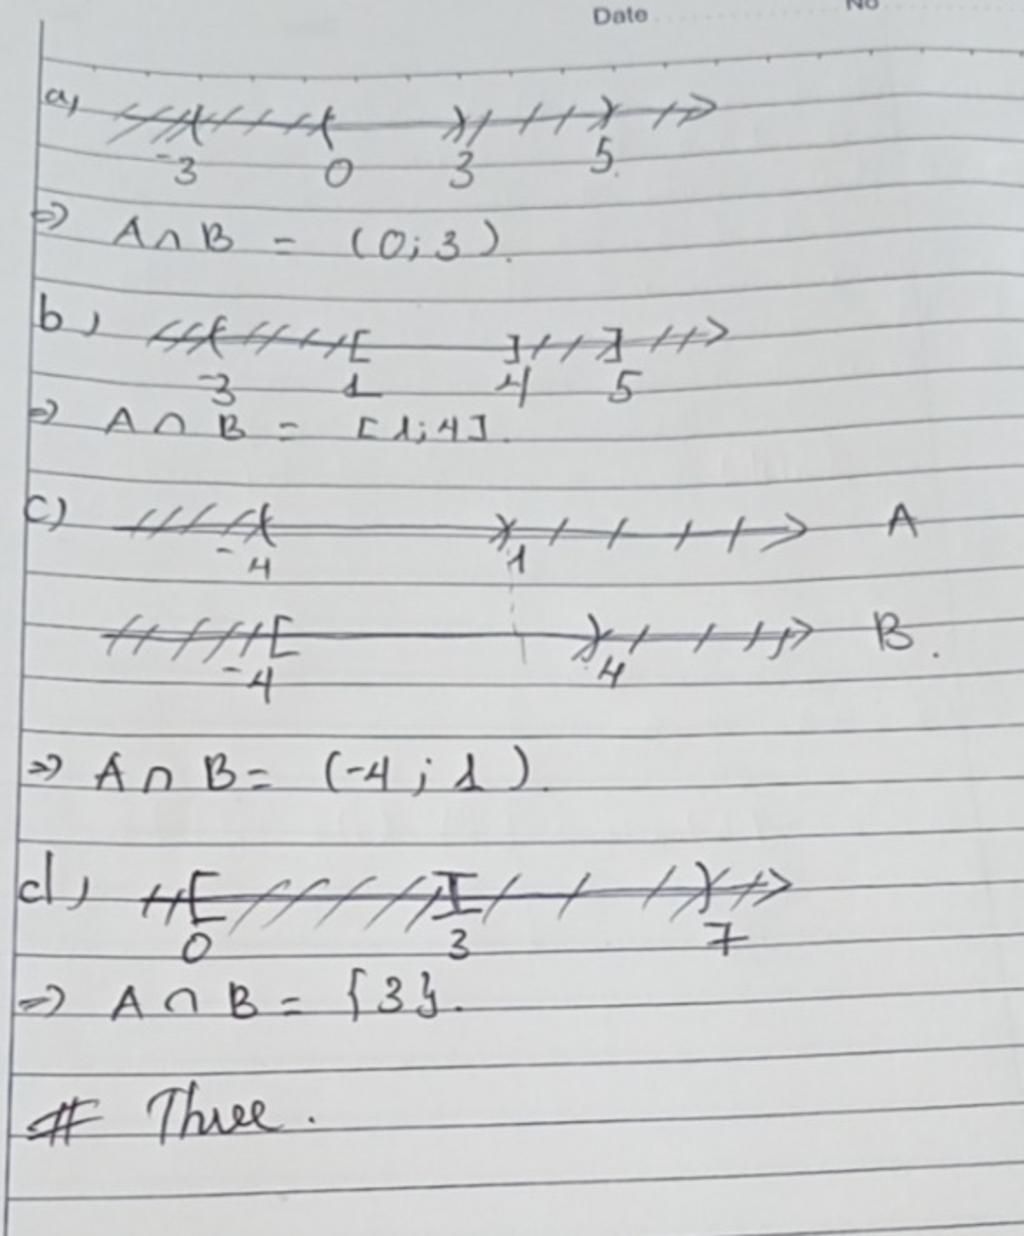 Date No
a,
-3 0 3 5
=> A ∩ B = (0; 3).
b,
-3 1 4 5
=> A ∩ B = [1; 4].
c) A
-4 1
B.
-4 4
=> A ∩ B = (-4; 1).
d,
0 3 7
=> A ∩ B = {3}.
# Three.